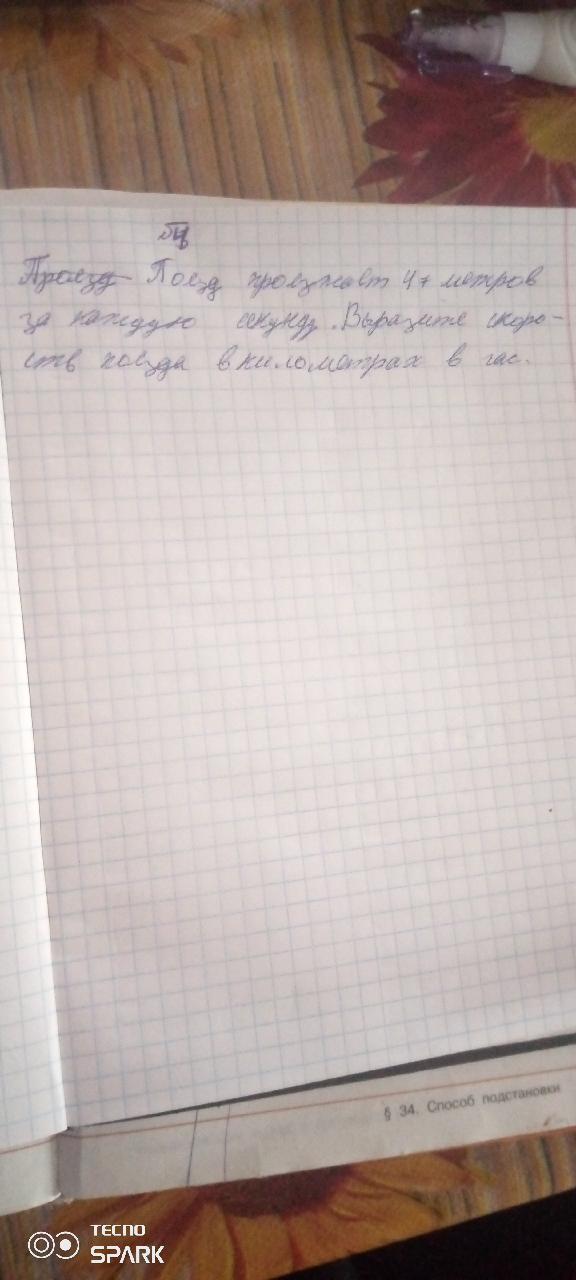 Проезд Поезд проезжает 47 метров
за каждую секунду. Выразите скоро-
сть поезда в километрах в час.
§ 34. Способ подстановки
TECNO
SPARK